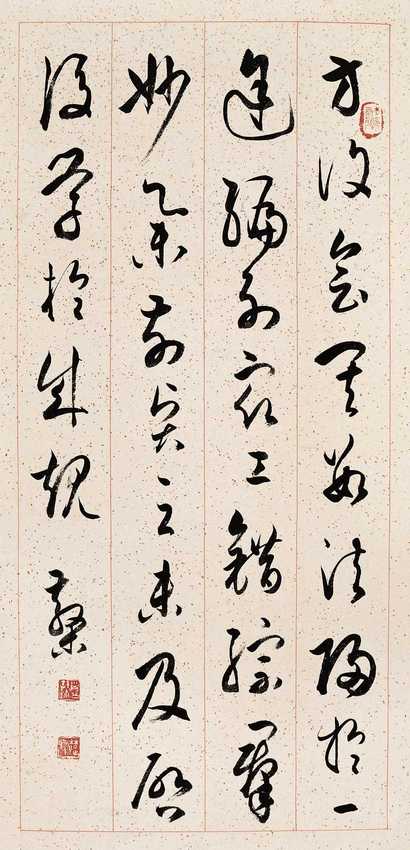 方復會其數法歸於一
途編列衆工錯綜羣
妙舉前賢之未及啓
後學於成規